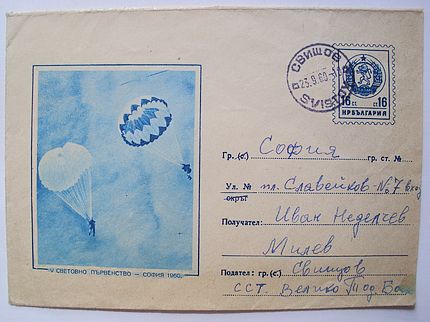 СВИЩОВ
23.9.60
SVISTOV
16 СТ. СТ. 16
НРБЪЛГАРИЯ
Гр. (с.) София гр. ст. №
Ул. № пл. Славейков - № 7 вход
окръг
Получател: Иван Неделчев
Милев
Подател: гр. (с.) Свищов
ССТ. Велико Тод. Ба
V СВЕТОВНО ПЪРВЕНСТВО — СОФИЯ 1960